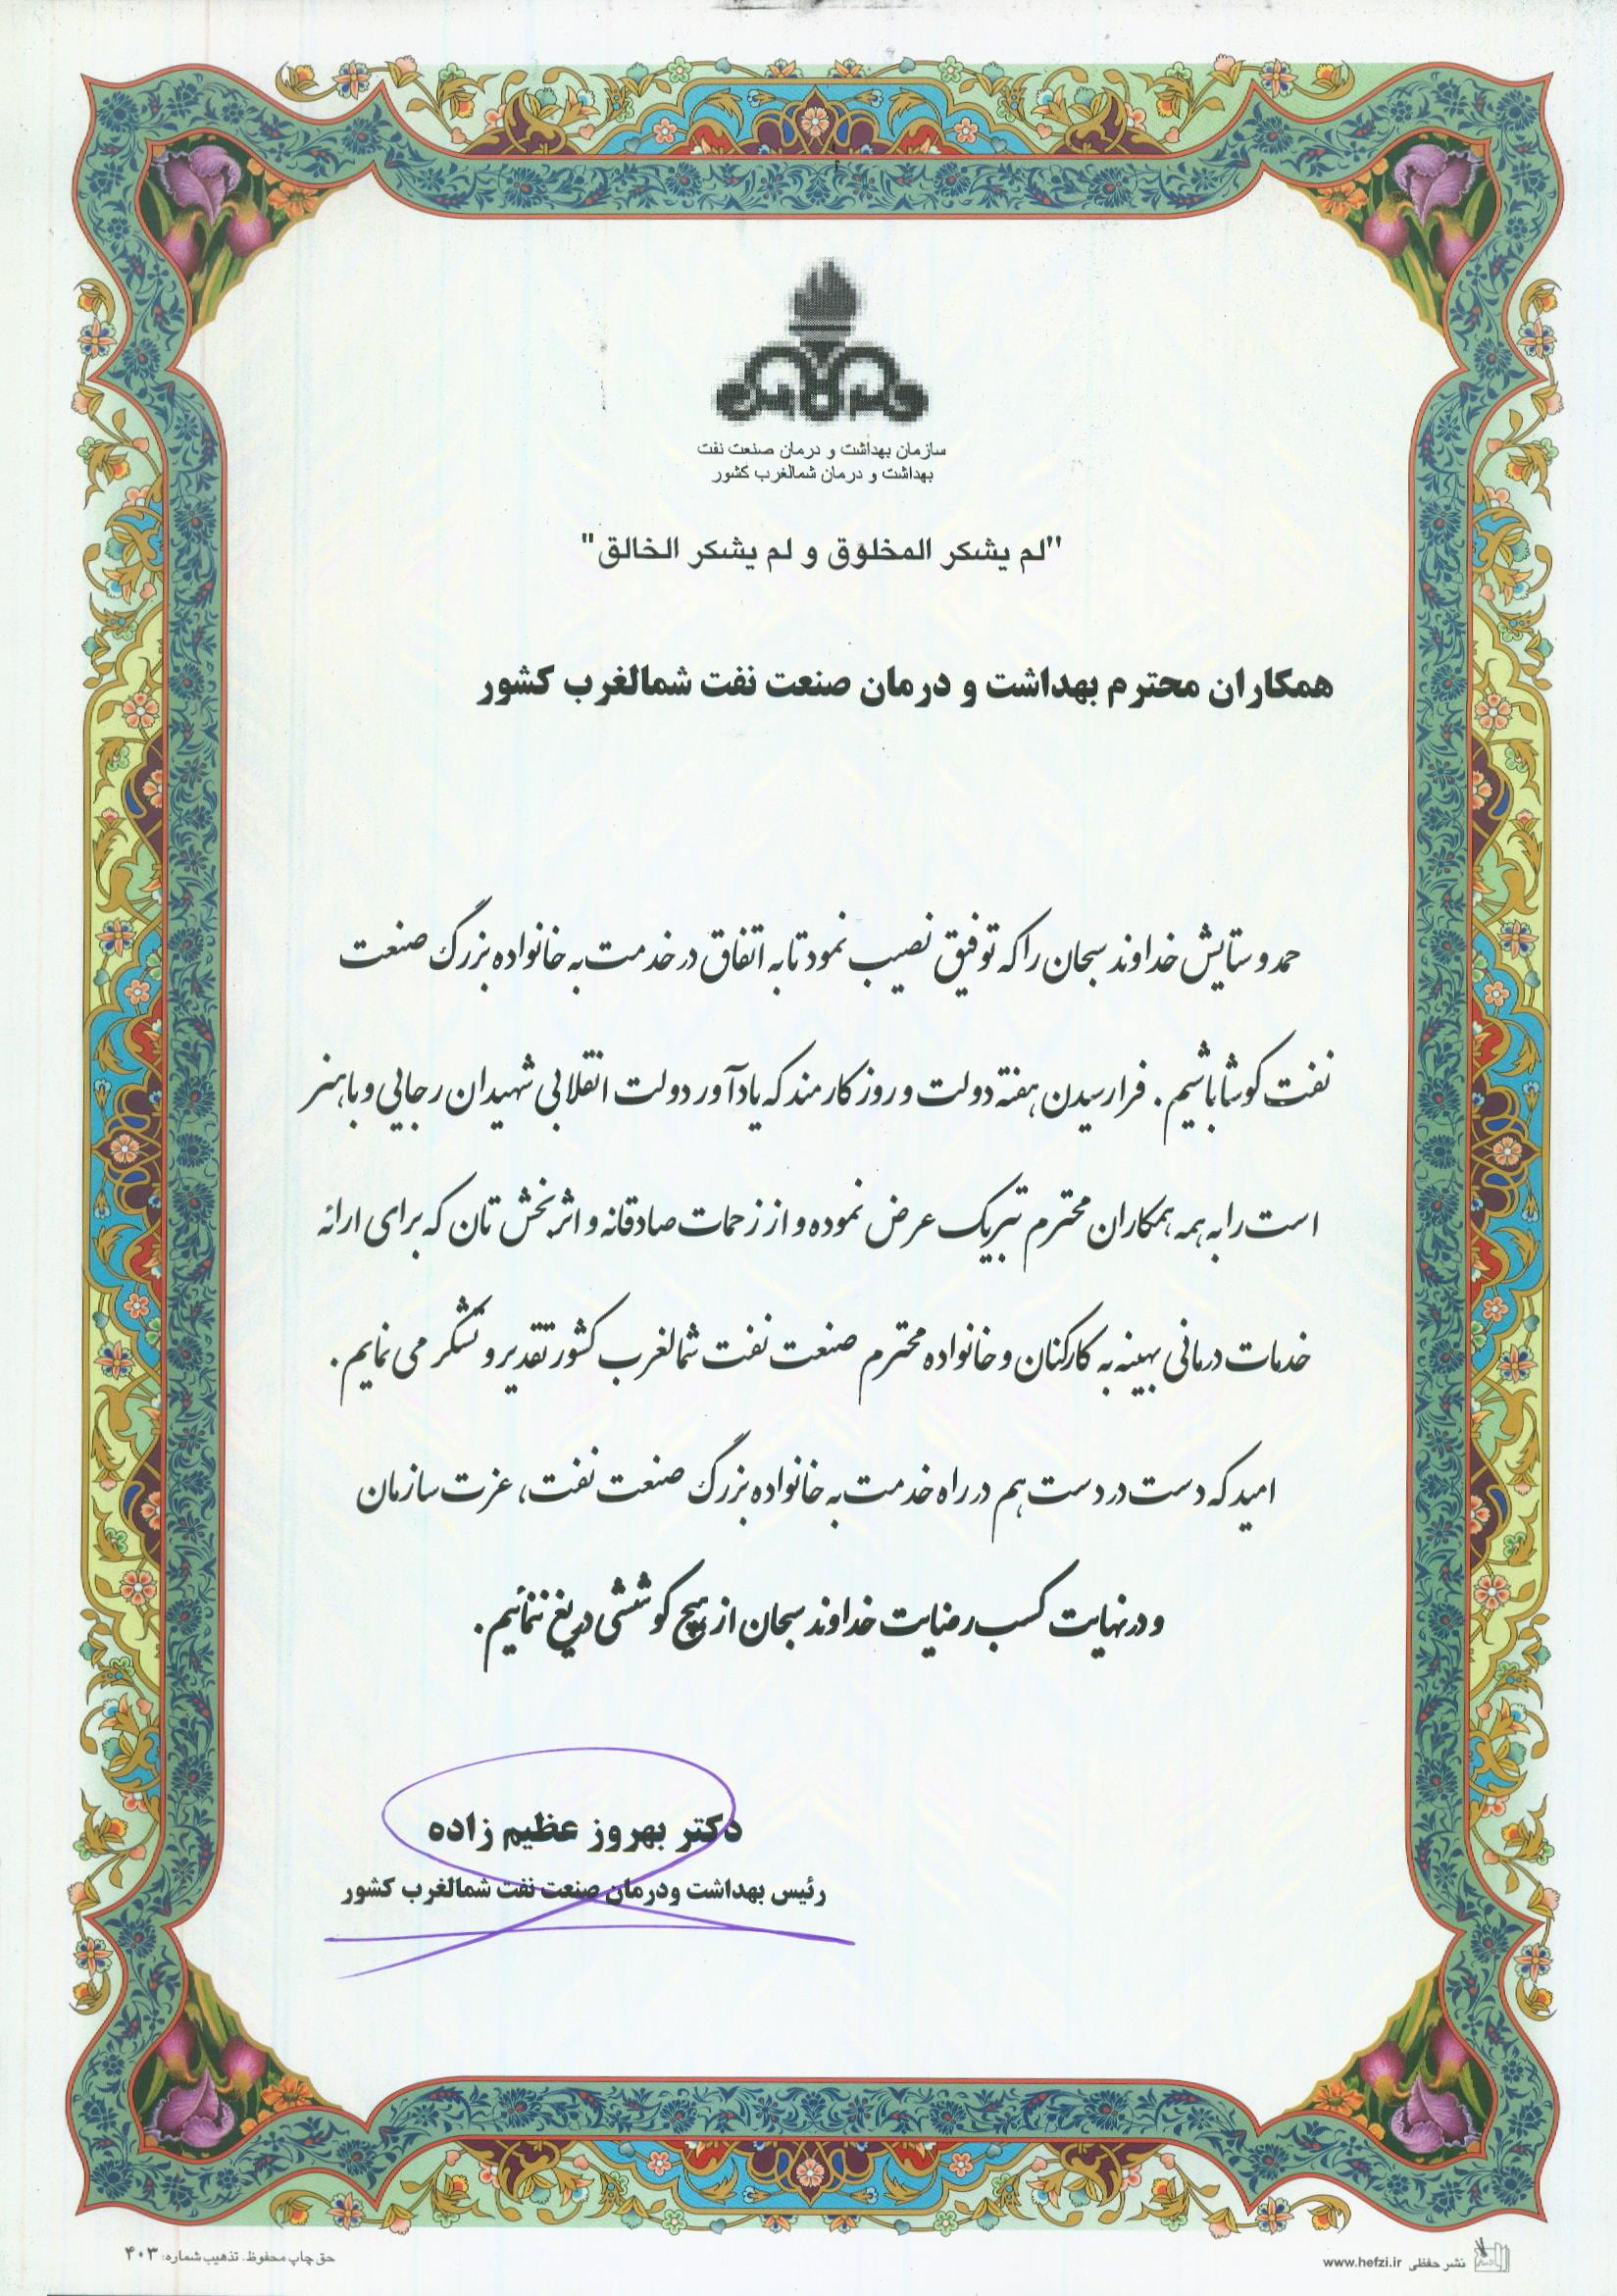 سازمان بهداشت و درمان صنعت نفت
بهداشت و درمان شمالغرب کشور
"لم یشکر المخلوق و لم یشکر الخالق"
همکاران محترم بهداشت و درمان صنعت نفت شمالغرب کشور
حمد و ستایش خداوند سبحان را که توفیق نصیب نمود تا به اتفاق در خدمت به خانواده بزرگ صنعت
نفت کوشا باشیم. فرارسیدن هفته دولت و روز کارمند که یادآور دولت انقلابی شهیدان رجایی و باهنر
است را به همه همکاران محترم تبریک عرض نموده و از زحمات صادقانه و اثربخش تان که برای ارائه
خدمات درمانی بهینه به کارکنان و خانواده محترم صنعت نفت شمالغرب کشور تقدیر و تشکر می نمایم.
امید که دست در دست هم در راه خدمت به خانواده بزرگ صنعت نفت، عزت سازمان
و در نهایت کسب رضایت خداوند سبحان از هیچ کوششی دریغ ننمائیم.
دکتر بهروز عظیم زاده
رئیس بهداشت ودرمان صنعت نفت شمالغرب کشور
نشر حفظی www.hefzi.ir
حق چاپ محفوظ. تذهیب شماره: ۴۰۳